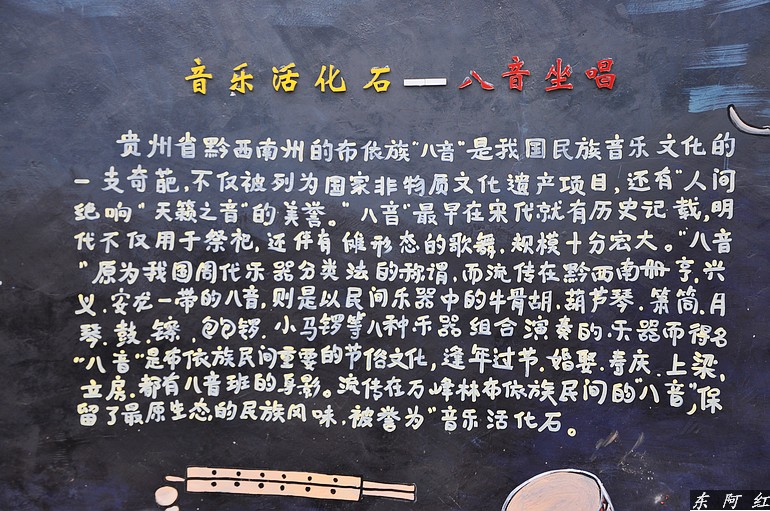 音乐活化石—八音坐唱
贵州省黔西南州的布依族"八音"是我国民族音乐文化的
一支奇葩,不仅被列为国家非物质文化遗产项目,还有"人间
绝响""天籁之音"的美誉。"八音"最早在宋代就有历史记载,明
代不仅用于祭祀,还伴有傩形态的歌舞,规模十分宏大。"八音
"原为我国周代乐器分类法的称谓,而流传在黔西南册亨,兴
义.安龙一带的八音,则是以民间乐器中的牛骨胡.葫芦琴.箫筒.月
琴.鼓.镲.包包锣.小马锣等八种乐器组合演奏的.乐器而得名
"八音"是布依族民间重要的节俗文化,逢年过节.婚娶.寿庆.上梁.
立房.都有八音班的身影。流传在万峰林布依族民间的"八音",保
留了最原生态的民族风味.被誉为"音乐活化石。
东阿红